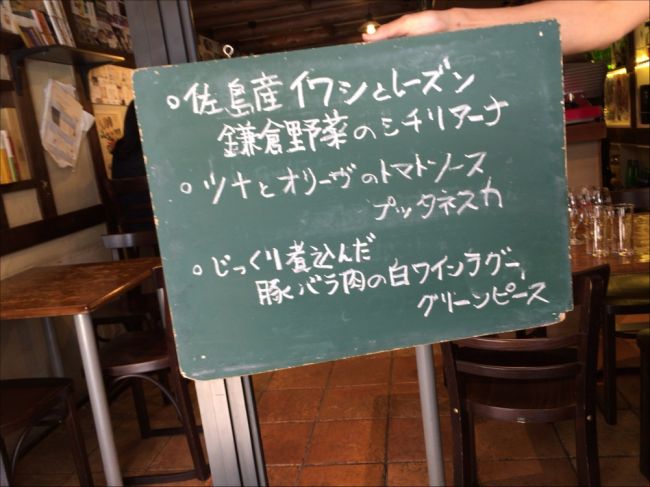 ○佐島産イワシとレーズン
鎌倉野菜のシチリアーナ
○ツナとオリーヴのトマトソース
プッタネスカ
○じっくり煮込んだ
豚バラ肉の白ワインラグー、
グリーンピース